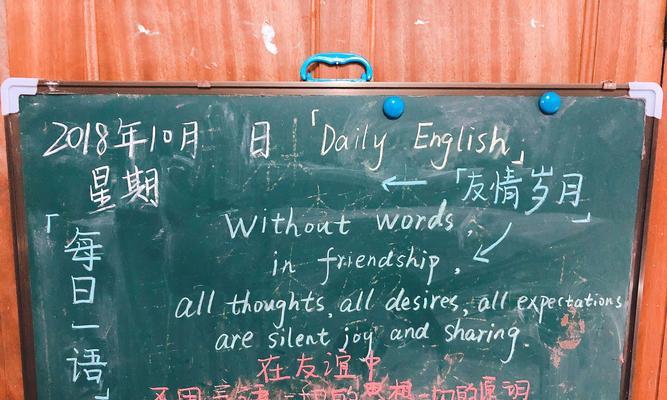 2018年10月 日 「Daily English」
星期
「友情岁月」
「每日一语」
Without words,
in friendship,
all thoughts, all desires, all expectations
are silent joy and sharing.
在友谊中
不用言语 一切的思想 一切的愿望